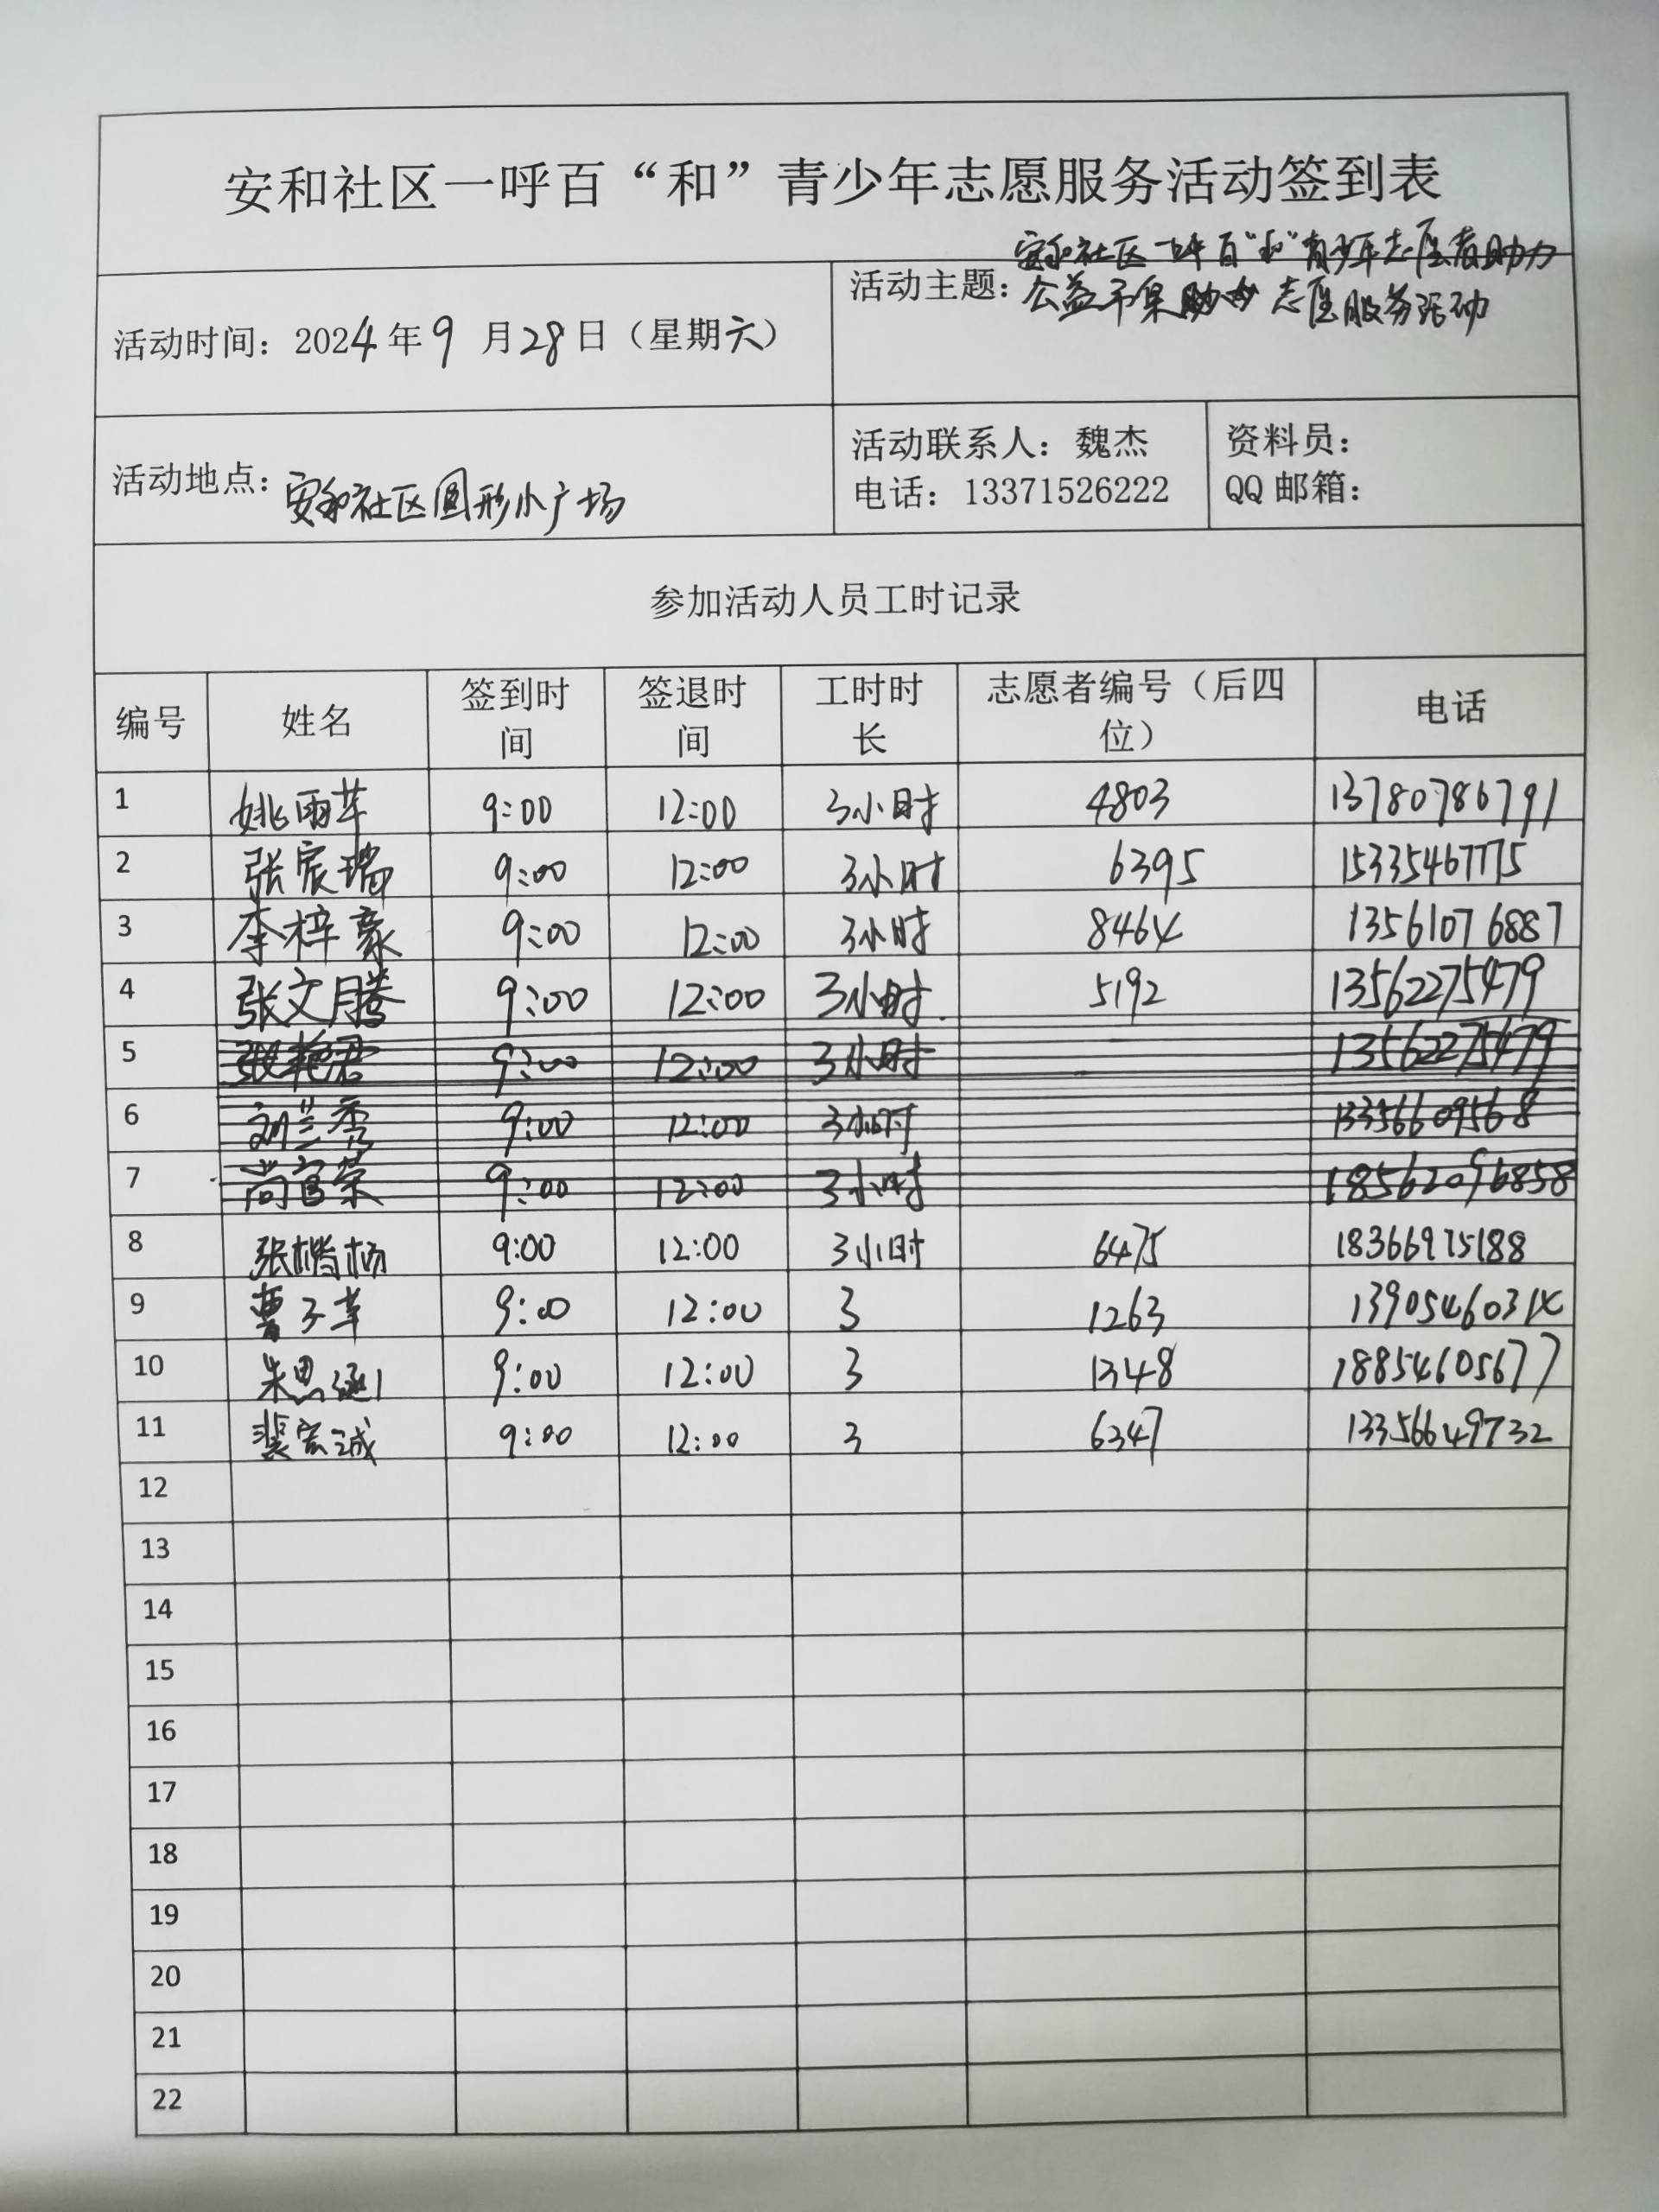 安和社区一呼百“和”青少年志愿服务活动签到表
活动时间：2024年9月28日（星期六）
活动主题：安和社区一呼百“和”青少年志愿者助力
公益市集 志愿服务活动
活动地点：安和社区圆形小广场
活动联系人：魏杰
电话：13371526222
资料员：
QQ邮箱：
参加活动人员工时记录
编号 姓名 签到时间 签退时间 工时时长 志愿者编号（后四位） 电话
1 姚雨芊 9:00 12:00 3小时 4803 13780786791
2 张宸瑞 9:00 12:00 3小时 6395 15335467775
3 李梓豪 9:00 12:00 3小时 8464 13561076887
4 张文腾 9:00 12:00 3小时 5192 13562275479
5 张艳君 9:00 12:00 3小时 13562275479
6 刘兰秀 9:00 12:00 3小时 13356609568
7 尚官荣 9:00 12:00 3小时 18562096858
8 张楷杨 9:00 12:00 3小时 6475 18366975188
9 曹子芊 9:00 12:00 3 1263
10 朱思涵 9:00 12:00 3 1348 18854605677
11 裴宏诚 9:00 12:00 3 6347 13356649732
12
13
14
15
16
17
18
19
20
21
22